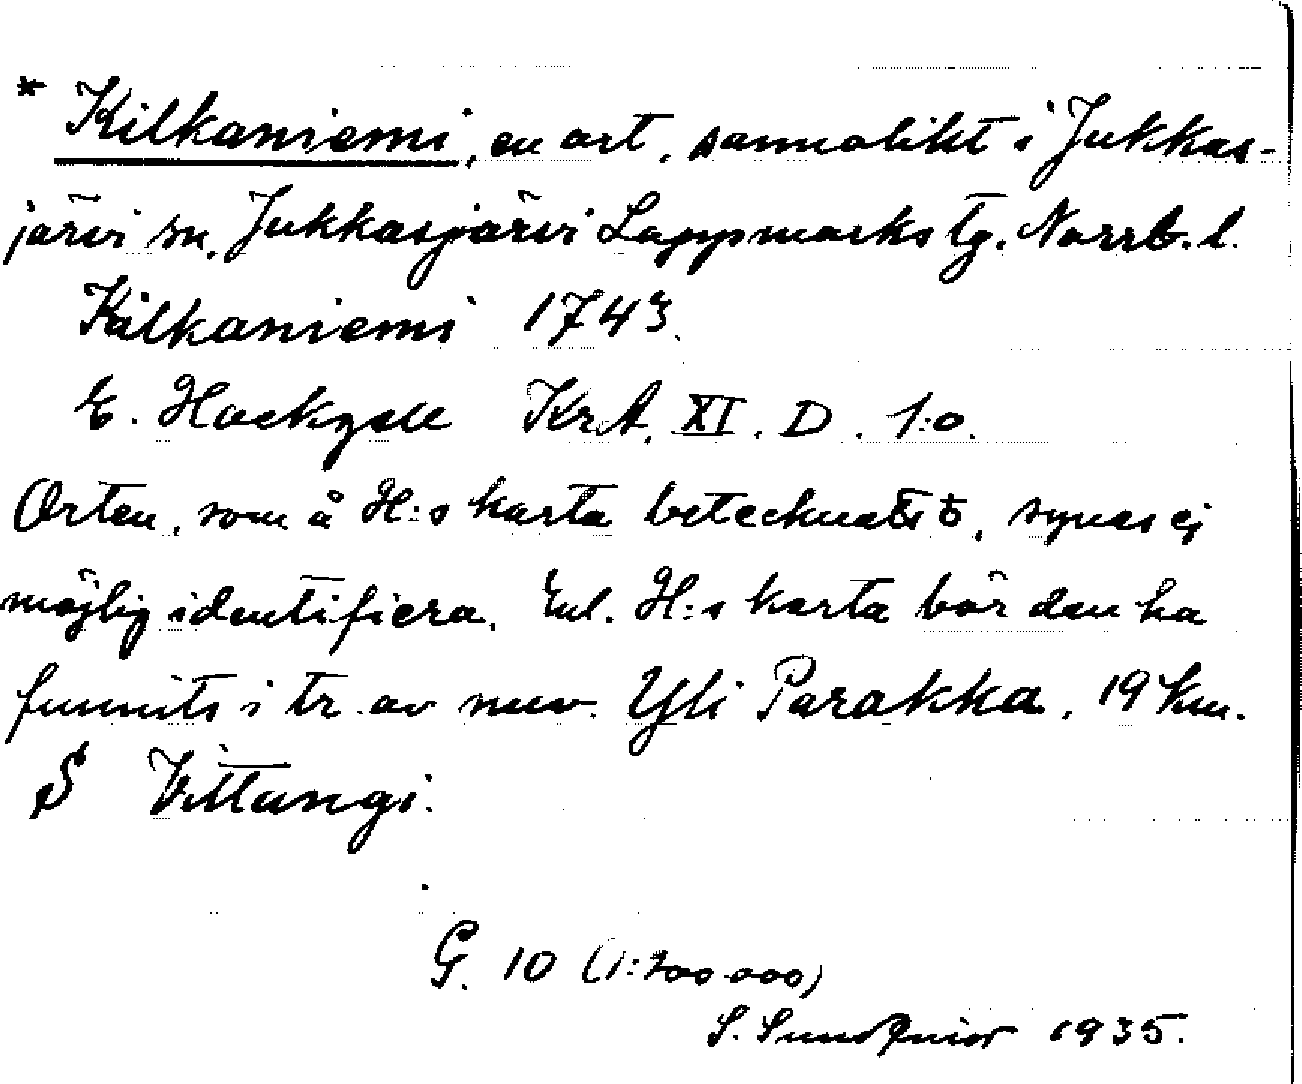 * Kilkaniemi, en ort, sannolikt i Jukkas-
järvi sn, Jukkasjärvi Lappmarks tg. Norrb. l.
Kilkaniemi 1743.
E. Hackzell KrA. XI. D. 1:0.
Orten, som å H:s karta betecknats ♁, synes ej
möjlig identifiera. Enl. H:s karta bör den ha
funnits i tr. av nuv. Yli Parakka, 19 km.
S Vittangi.
G. 10 (1:200 000)
S. Sundqvist 1935.